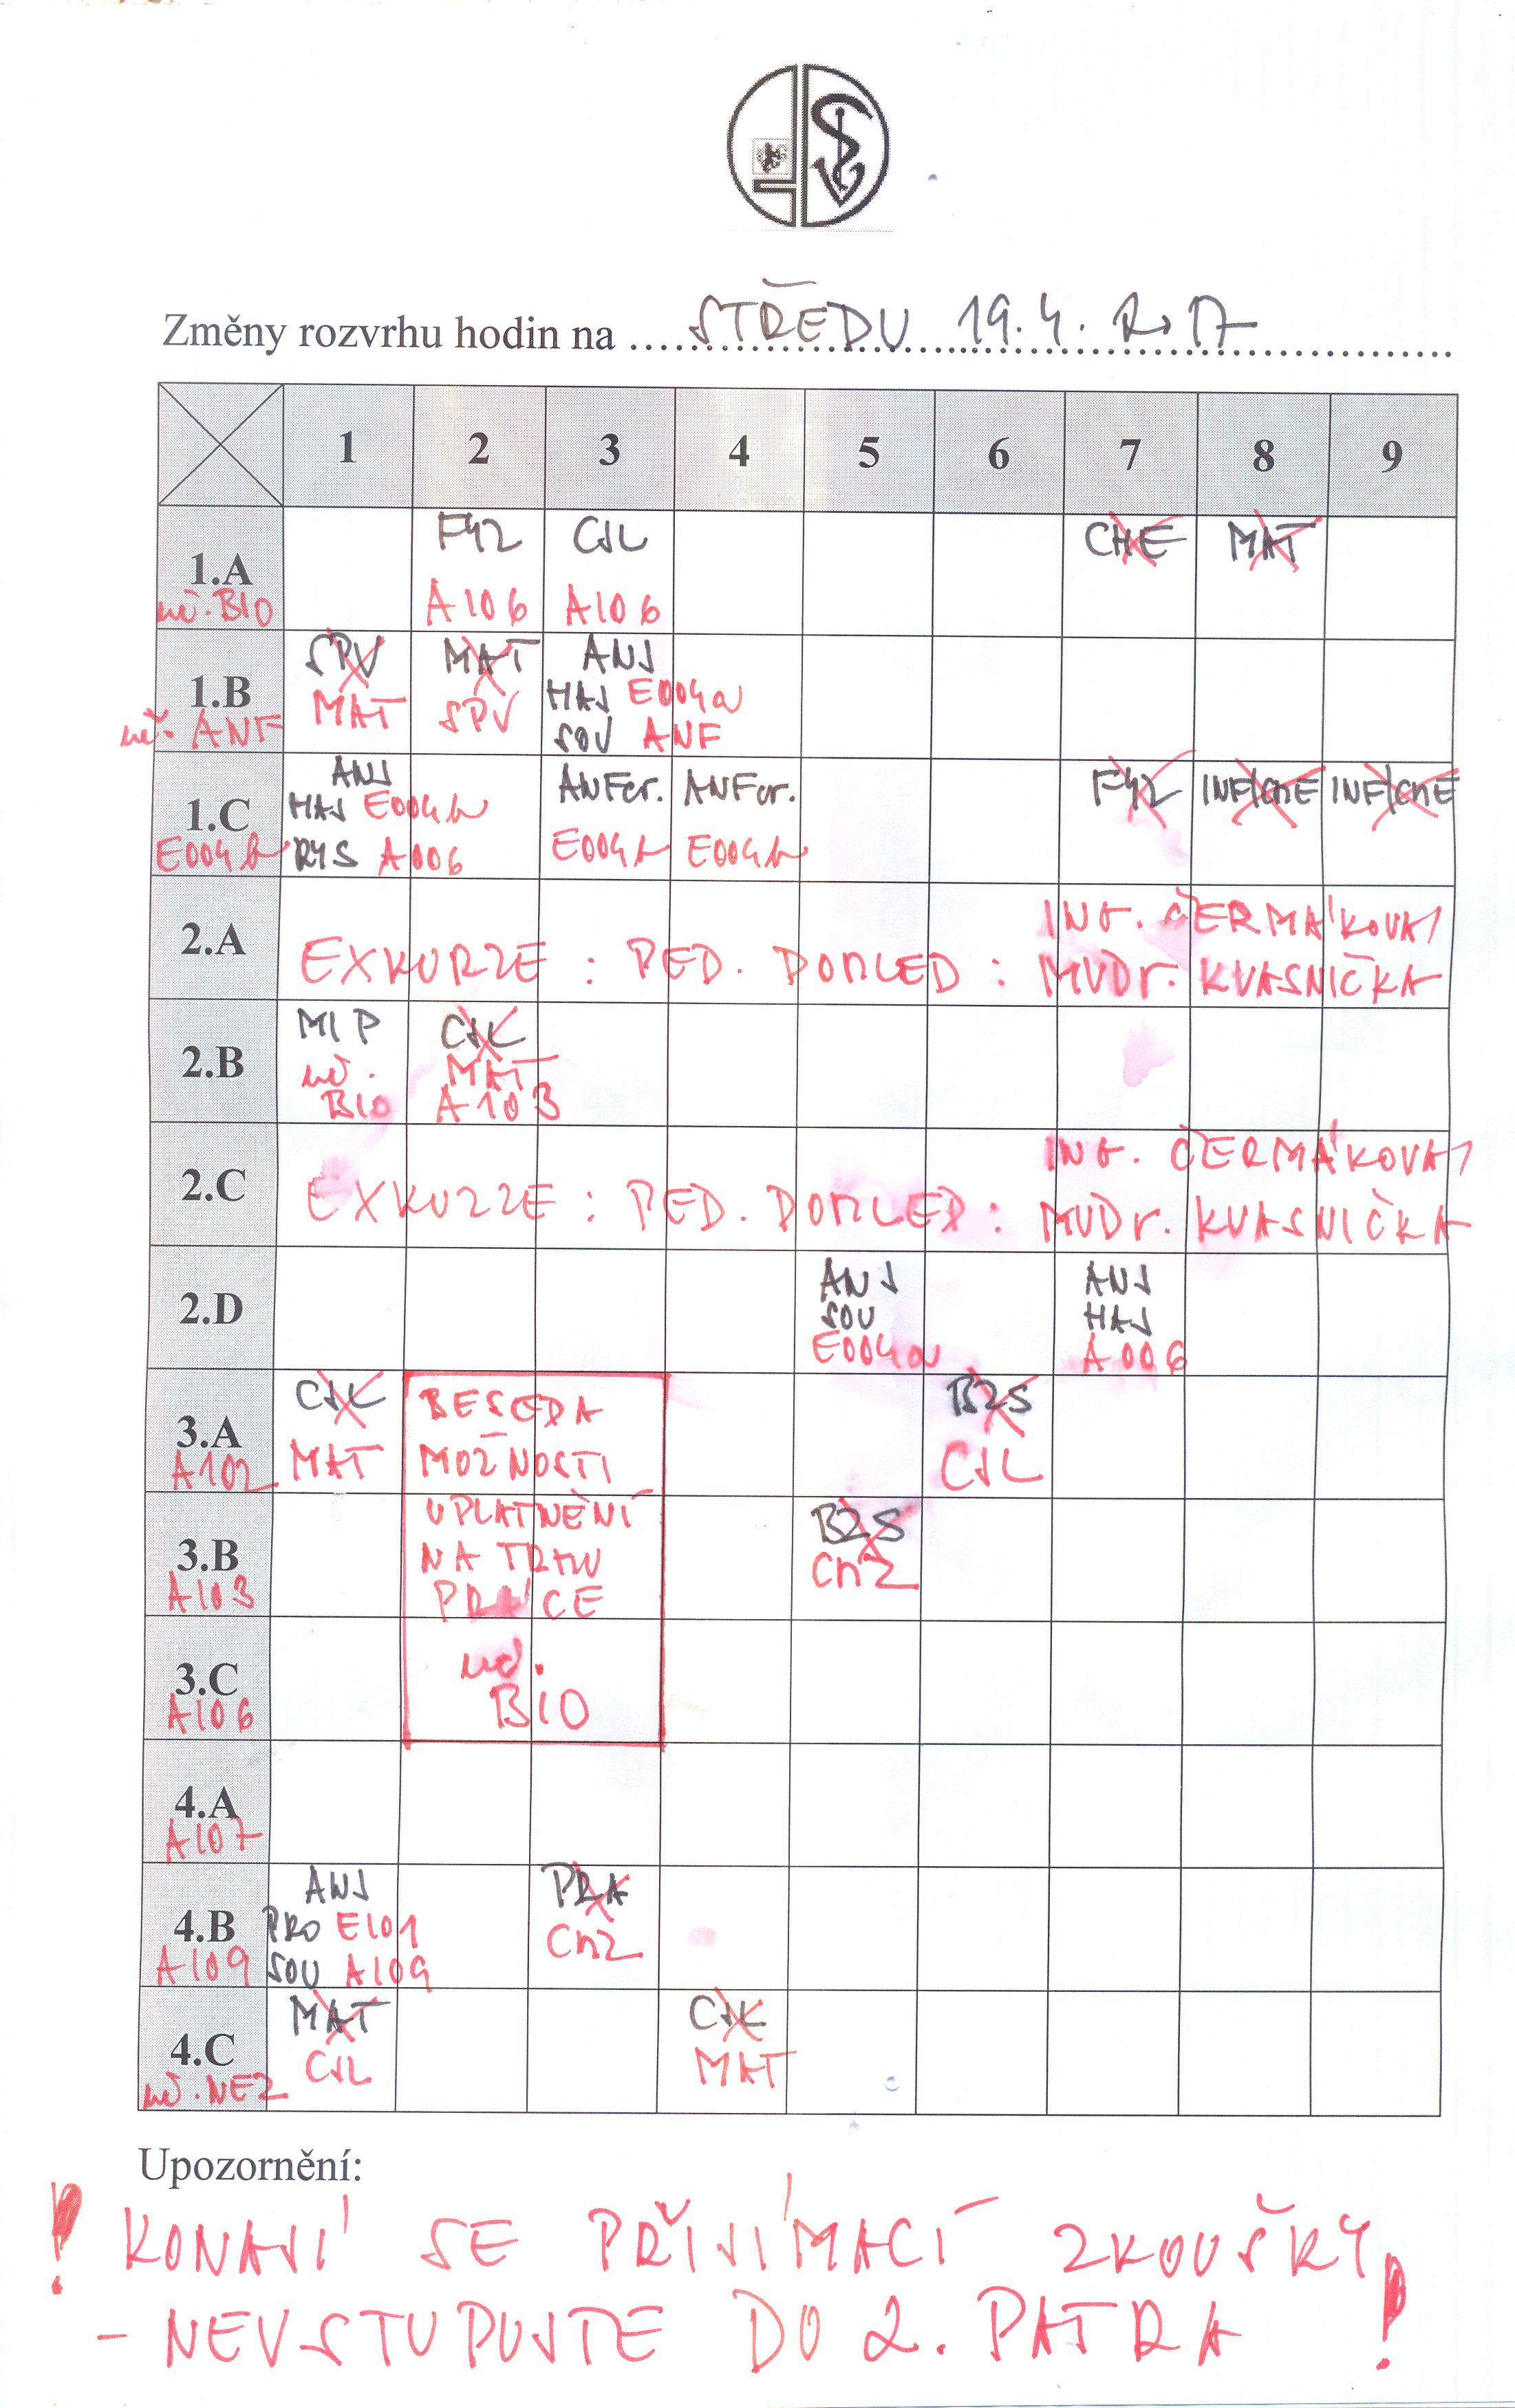 Změny rozvrhu hodin na STŘEDU 19.4. 2017
1 2 3 4 5 6 7 8 9
1.A FYZ CJL CHE MAT
uč. BIO A106 A106
1.B SPV MAT ANJ
MAT SPV HAJ E004a
uč. ANF SOU ANF
1.C ANJ ANFcv. ANFcv. FYZ INF/CHE INF/CHE
HAJ E004b
E004b RYS A006 E004b E004b
2.A ING. ČERMÁKOVÁ
EXKURZE : PED. DOHLED : MVDr. KVASNIČKA
2.B MIP CJL
uč. MAT
BIO A103
2.C ING. ČERMÁKOVÁ
EXKURZE : PED. DOHLED : MVDr. KVASNIČKA
2.D ANJ ANJ
SOU HAJ
E004a A006
3.A CJL BESEDA BZS
A102 MAT MOŽNOSTI CJL
3.B UPLATNĚNÍ BZS
NA TRHU CHZ
A103 PRÁCE
3.C uč.
A106 BIO
4.A
A107
4.B ANJ PRA
PRO E101 CHZ
A109 SOU A109
4.C MAT CJL
uč. NEZ CJL MAT
Upozornění:
! KONAJÍ SE PŘIJÍMACÍ ZKOUŠKY
- NEVSTUPUJTE DO 2. PATRA !